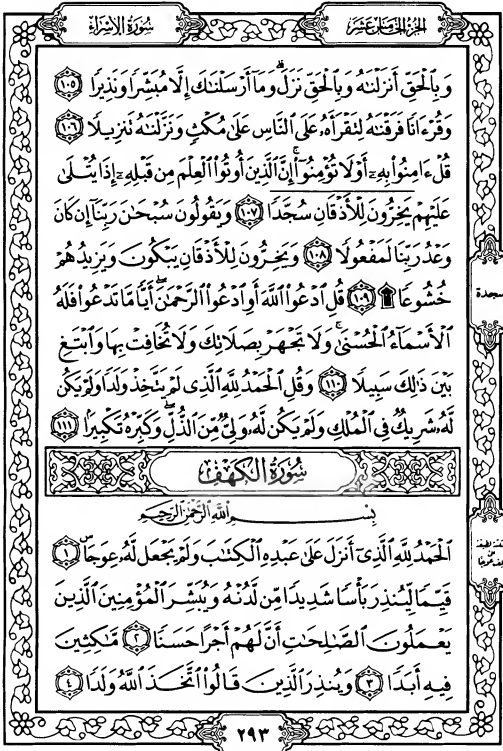 سُورَةُ الإِسْرَاءِ
الجُزْءُ الخَامِسَ عَشَرَ
وَبِٱلْحَقِّ أَنزَلْنَٰهُ وَبِٱلْحَقِّ نَزَلَۗ وَمَآ أَرْسَلْنَٰكَ إِلَّا مُبَشِّرًا وَنَذِيرًا ١٠٥
وَقُرْءَانًا فَرَقْنَٰهُ لِتَقْرَأَهُۥ عَلَى ٱلنَّاسِ عَلَىٰ مُكْثٍ وَنَزَّلْنَٰهُ تَنزِيلًا ١٠٦
قُلْ ءَامِنُوا۟ بِهِۦٓ أَوْ لَا تُؤْمِنُوٓا۟ۚ إِنَّ ٱلَّذِينَ أُوتُوا۟ ٱلْعِلْمَ مِن قَبْلِهِۦٓ إِذَا يُتْلَىٰ
عَلَيْهِمْ يَخِرُّونَ لِلْأَذْقَانِ سُجَّدًا ١٠٧ وَيَقُولُونَ سُبْحَٰنَ رَبِّنَآ إِن كَانَ
وَعْدُ رَبِّنَا لَمَفْعُولًا ١٠٨ وَيَخِرُّونَ لِلْأَذْقَانِ يَبْكُونَ وَيَزِيدُهُمْ
خُشُوعًا ۩ ١٠٩ قُلِ ٱدْعُوا۟ ٱللَّهَ أَوِ ٱدْعُوا۟ ٱلرَّحْمَٰنَۖ أَيًّا مَّا تَدْعُوا۟ فَلَهُ
ٱلْأَسْمَآءُ ٱلْحُسْنَىٰۚ وَلَا تَجْهَرْ بِصَلَاتِكَ وَلَا تُخَافِتْ بِهَا وَٱبْتَغِ
بَيْنَ ذَٰلِكَ سَبِيلًا ١١٠ وَقُلِ ٱلْحَمْدُ لِلَّهِ ٱلَّذِى لَمْ يَتَّخِذْ وَلَدًا وَلَمْ يَكُن
لَّهُۥ شَرِيكٌ فِى ٱلْمُلْكِ وَلَمْ يَكُن لَّهُۥ وَلِىٌّ مِّنَ ٱلذُّلِّۖ وَكَبِّرْهُ تَكْبِيرًۢا ١١١
سُورَةُ الكَهْفِ
بِسْمِ ٱللَّهِ ٱلرَّحْمَٰنِ ٱلرَّحِيمِ
ٱلْحَمْدُ لِلَّهِ ٱلَّذِىٓ أَنزَلَ عَلَىٰ عَبْدِهِ ٱلْكِتَٰبَ وَلَمْ يَجْعَل لَّهُۥ عِوَجَاۜ ١
قَيِّمًا لِّيُنذِرَ بَأْسًا شَدِيدًا مِّن لَّدُنْهُ وَيُبَشِّرَ ٱلْمُؤْمِنِينَ ٱلَّذِينَ
يَعْمَلُونَ ٱلصَّٰلِحَٰتِ أَنَّ لَهُمْ أَجْرًا حَسَنًا ٢ مَّٰكِثِينَ
فِيهِ أَبَدًا ٣ وَيُنذِرَ ٱلَّذِينَ قَالُوا۟ ٱتَّخَذَ ٱللَّهُ وَلَدًا ٤
٢٩٣
سجدة